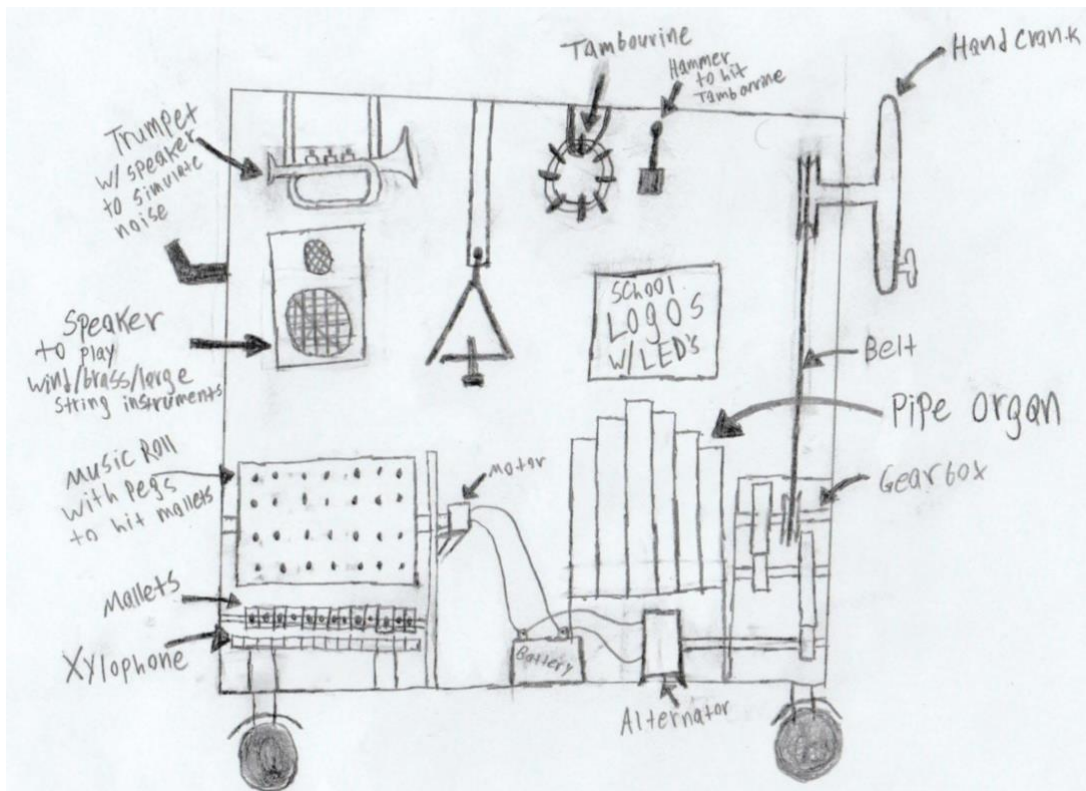 Tambourine
Hammer
to hit
Tambourine
Hand Crank
Trumpet
w/ speaker
to simulate
noise
School
Logos
w/ LED's
Speaker
to play
wind/brass/large
string instruments
Belt
Pipe Organ
Music Roll
with Pegs
to hit mallets
Motor
Gearbox
Mallets
Xylophone
Battery
Alternator